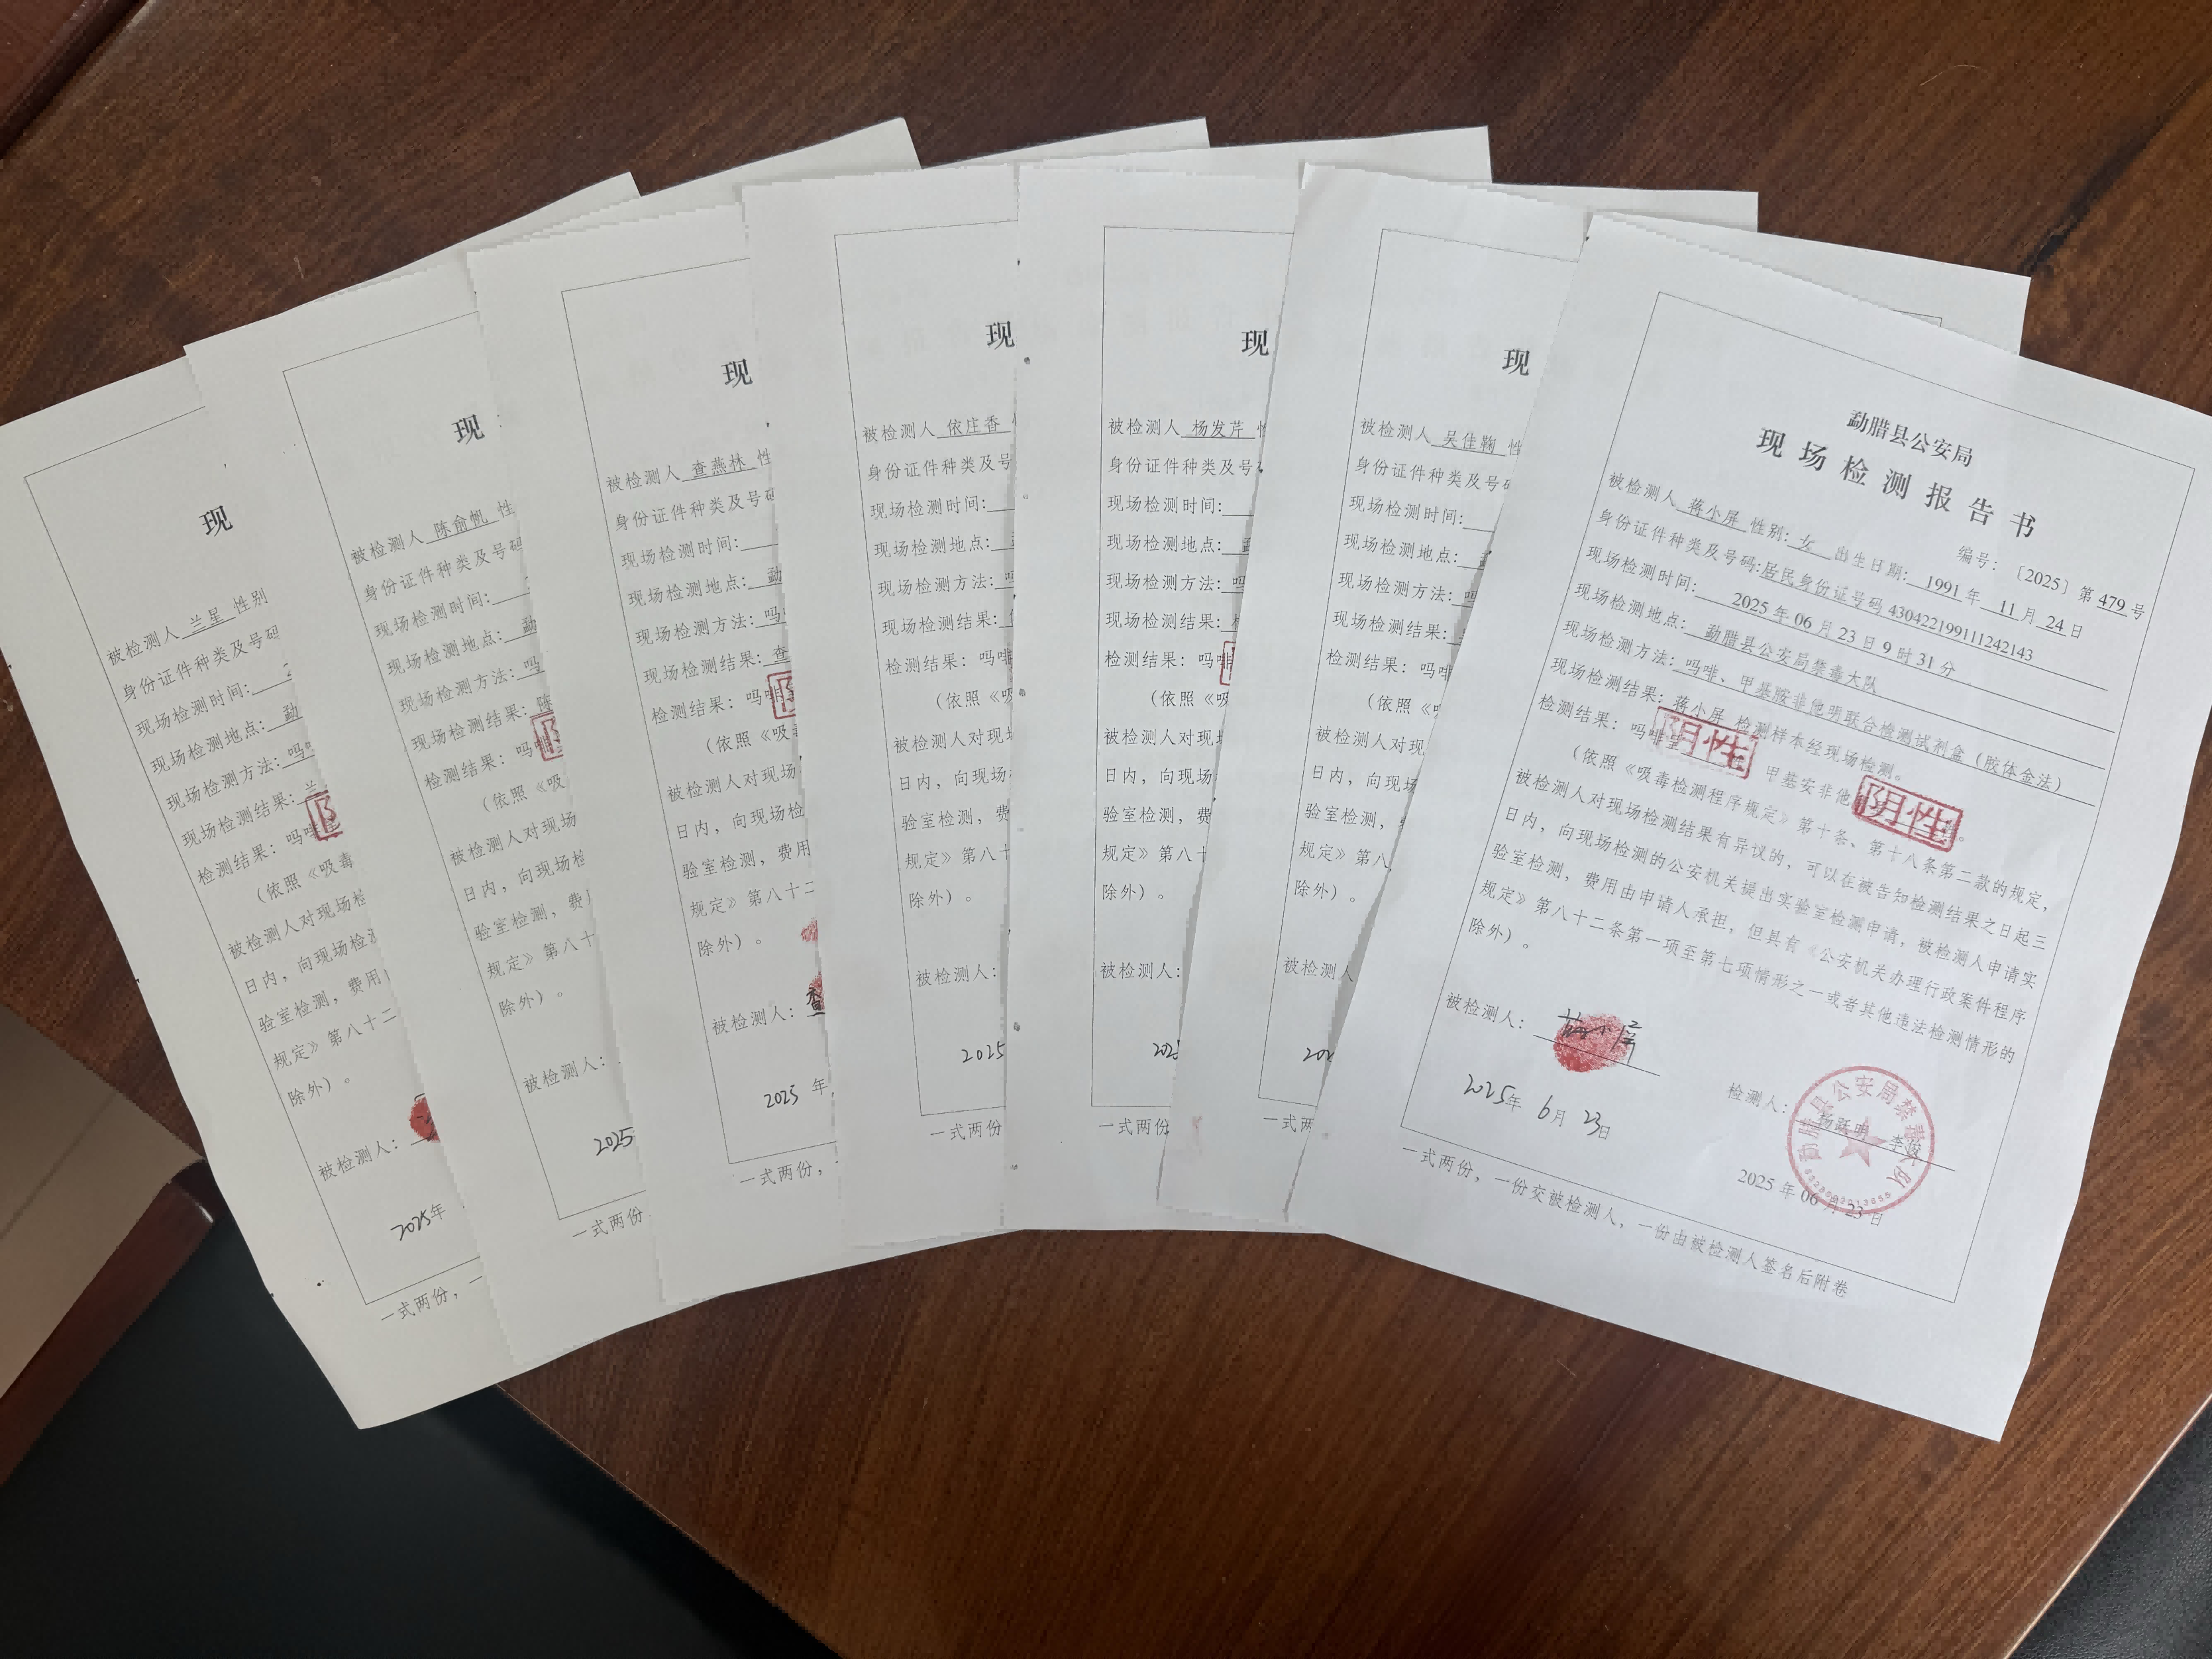 现
被检测人 兰星 性别
身份证件种类及号码
现场检测时间:
现场检测地点: 勐
现场检测方法: 吗
现场检测结果: 兰
检测结果: 吗啡
(依照《吸毒
被检测人对现场检
日内，向现场检
验室检测，费用
规定》第八十二
除外）。
被检测人:
2025年
一式两份，
现
被检测人 陈俞帆 性
身份证件种类及号码
现场检测时间:
现场检测地点: 勐
现场检测方法: 吗
现场检测结果: 陈
检测结果: 吗啡
(依照《吸
被检测人对现场
日内，向现场检
验室检测，费
规定》第八十
除外）。
被检测人:
2025
一式两份
现
被检测人 查燕林 性
身份证件种类及号码
现场检测时间:
现场检测地点: 勐
现场检测方法: 吗
现场检测结果: 查
检测结果: 吗啡
(依照《吸
被检测人对现场
日内，向现场检
验室检测，费用
规定》第八十二
除外）。
被检测人: 查
2025 年
一式两份，
现
被检测人 依庄香
身份证件种类及号
现场检测时间:
现场检测地点:
现场检测方法: 吗
现场检测结果:
检测结果: 吗啡
(依照《吸
被检测人对现
日内，向现场
验室检测，费
规定》第八十
除外）。
被检测人:
2025
一式两份
现
被检测人 杨发芹 性
身份证件种类及号
现场检测时间:
现场检测地点: 勐
现场检测方法: 吗
现场检测结果:
检测结果: 吗啡
(依照《吸
被检测人对现
日内，向现场
验室检测，费
规定》第八十
除外）。
被检测人:
202
一式两份
现
被检测人 吴佳鞠 性
身份证件种类及号
现场检测时间:
现场检测地点:
现场检测方法: 吗
现场检测结果:
检测结果: 吗啡
(依照《吸
被检测人对现
日内，向现场
验室检测，
规定》第八
除外）。
被检测人
202
一式两
勐腊县公安局
现场检测报告书
编号: 〔2025〕第 479 号
被检测人 蒋小屏 性别: 女 出生日期: 1991 年 11 月 24 日
身份证件种类及号码:居民身份证号码 430422199111242143
现场检测时间: 2025 年 06 月 23 日 9 时 31 分
现场检测地点: 勐腊县公安局禁毒大队
现场检测方法: 吗啡、甲基胺非他明联合检测试剂盒（胶体金法）
现场检测结果: 蒋小屏 检测样本经现场检测。
检测结果: 吗啡呈 阴性 甲基安非他 阴性 。
(依照《吸毒检测程序规定》第十条、第十八条第二款的规定，
被检测人对现场检测结果有异议的，可以在被告知检测结果之日起三
日内，向现场检测的公安机关提出实验室检测申请，被检测人申请实
验室检测，费用由申请人承担，但具有《公安机关办理行政案件程序
规定》第八十二条第一项至第七项情形之一或者其他违法检测情形的
除外）。
被检测人: 蒋小屏
2025年 6月 23日
检测人: 杨跃明 李俊
勐腊县公安局禁毒大队
2025 年 06 月 23 日
一式两份，一份交被检测人，一份由被检测人签名后附卷